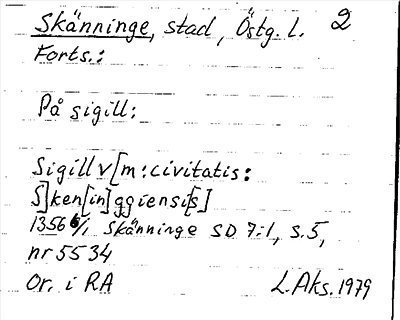 Skänninge, stad, Östg. l. 2
Forts.:
På sigill:
Sigillv[m:civitatis:
S]ken[in]ggiensi[s]
1356 6/1 Skänninge SD 7:1, s.5,
nr 5534
Or. i RA L.Aks. 1979